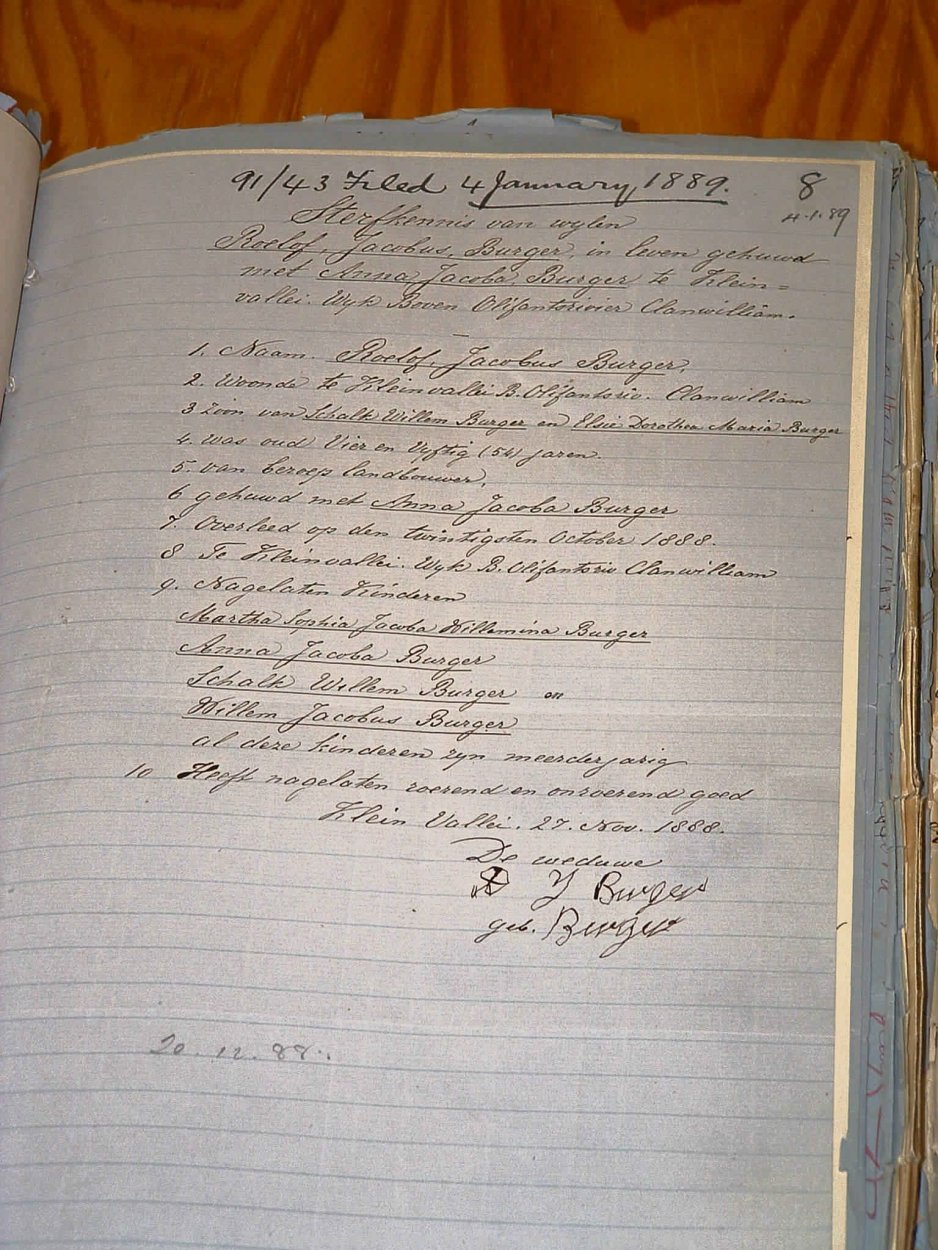 91/43 Filed 4 January, 1889. 8
4-1-89
Sterfkennis van wylen
Roelof, Jacobus, Burger, in leven gehuwd
met Anna Jacoba Burger te Klein=
vallei. Wyk Boven Olifantsrivier Clanwilliam.
1. Naam. Roelof, Jacobus Burger.
2. Woonde te Kleinvallei B. Olifantsriv. Clanwilliam
3 Zoon van Schalk Willem Burger en Elsie Dorothea Maria Burger
4. was oud Vier en Vyftig (54) jaren.
5. van beroep landbouwer.
6 gehuwd met Anna Jacoba Burger
7. Overleed op den twintigsten October 1888.
8 Te Kleinvallei. Wyk B. Olifantsriv Clanwilliam
9. Nagelaten Kinderen
Martha Sophia Jacoba Willemina Burger
Anna Jacoba Burger
Schalk Willem Burger en
Willem Jacobus Burger
al deze kinderen zyn meerderjarig
10 Heeft nagelaten roerend en onroerend goed
Klein Vallei. 27. Nov. 1888.
De weduwe
J Burger
geb. Burger
20.12.88.